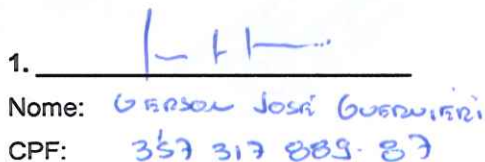 1.
Nome: GERSON JOSÉ GUERNIERI
CPF: 357 317 889-87